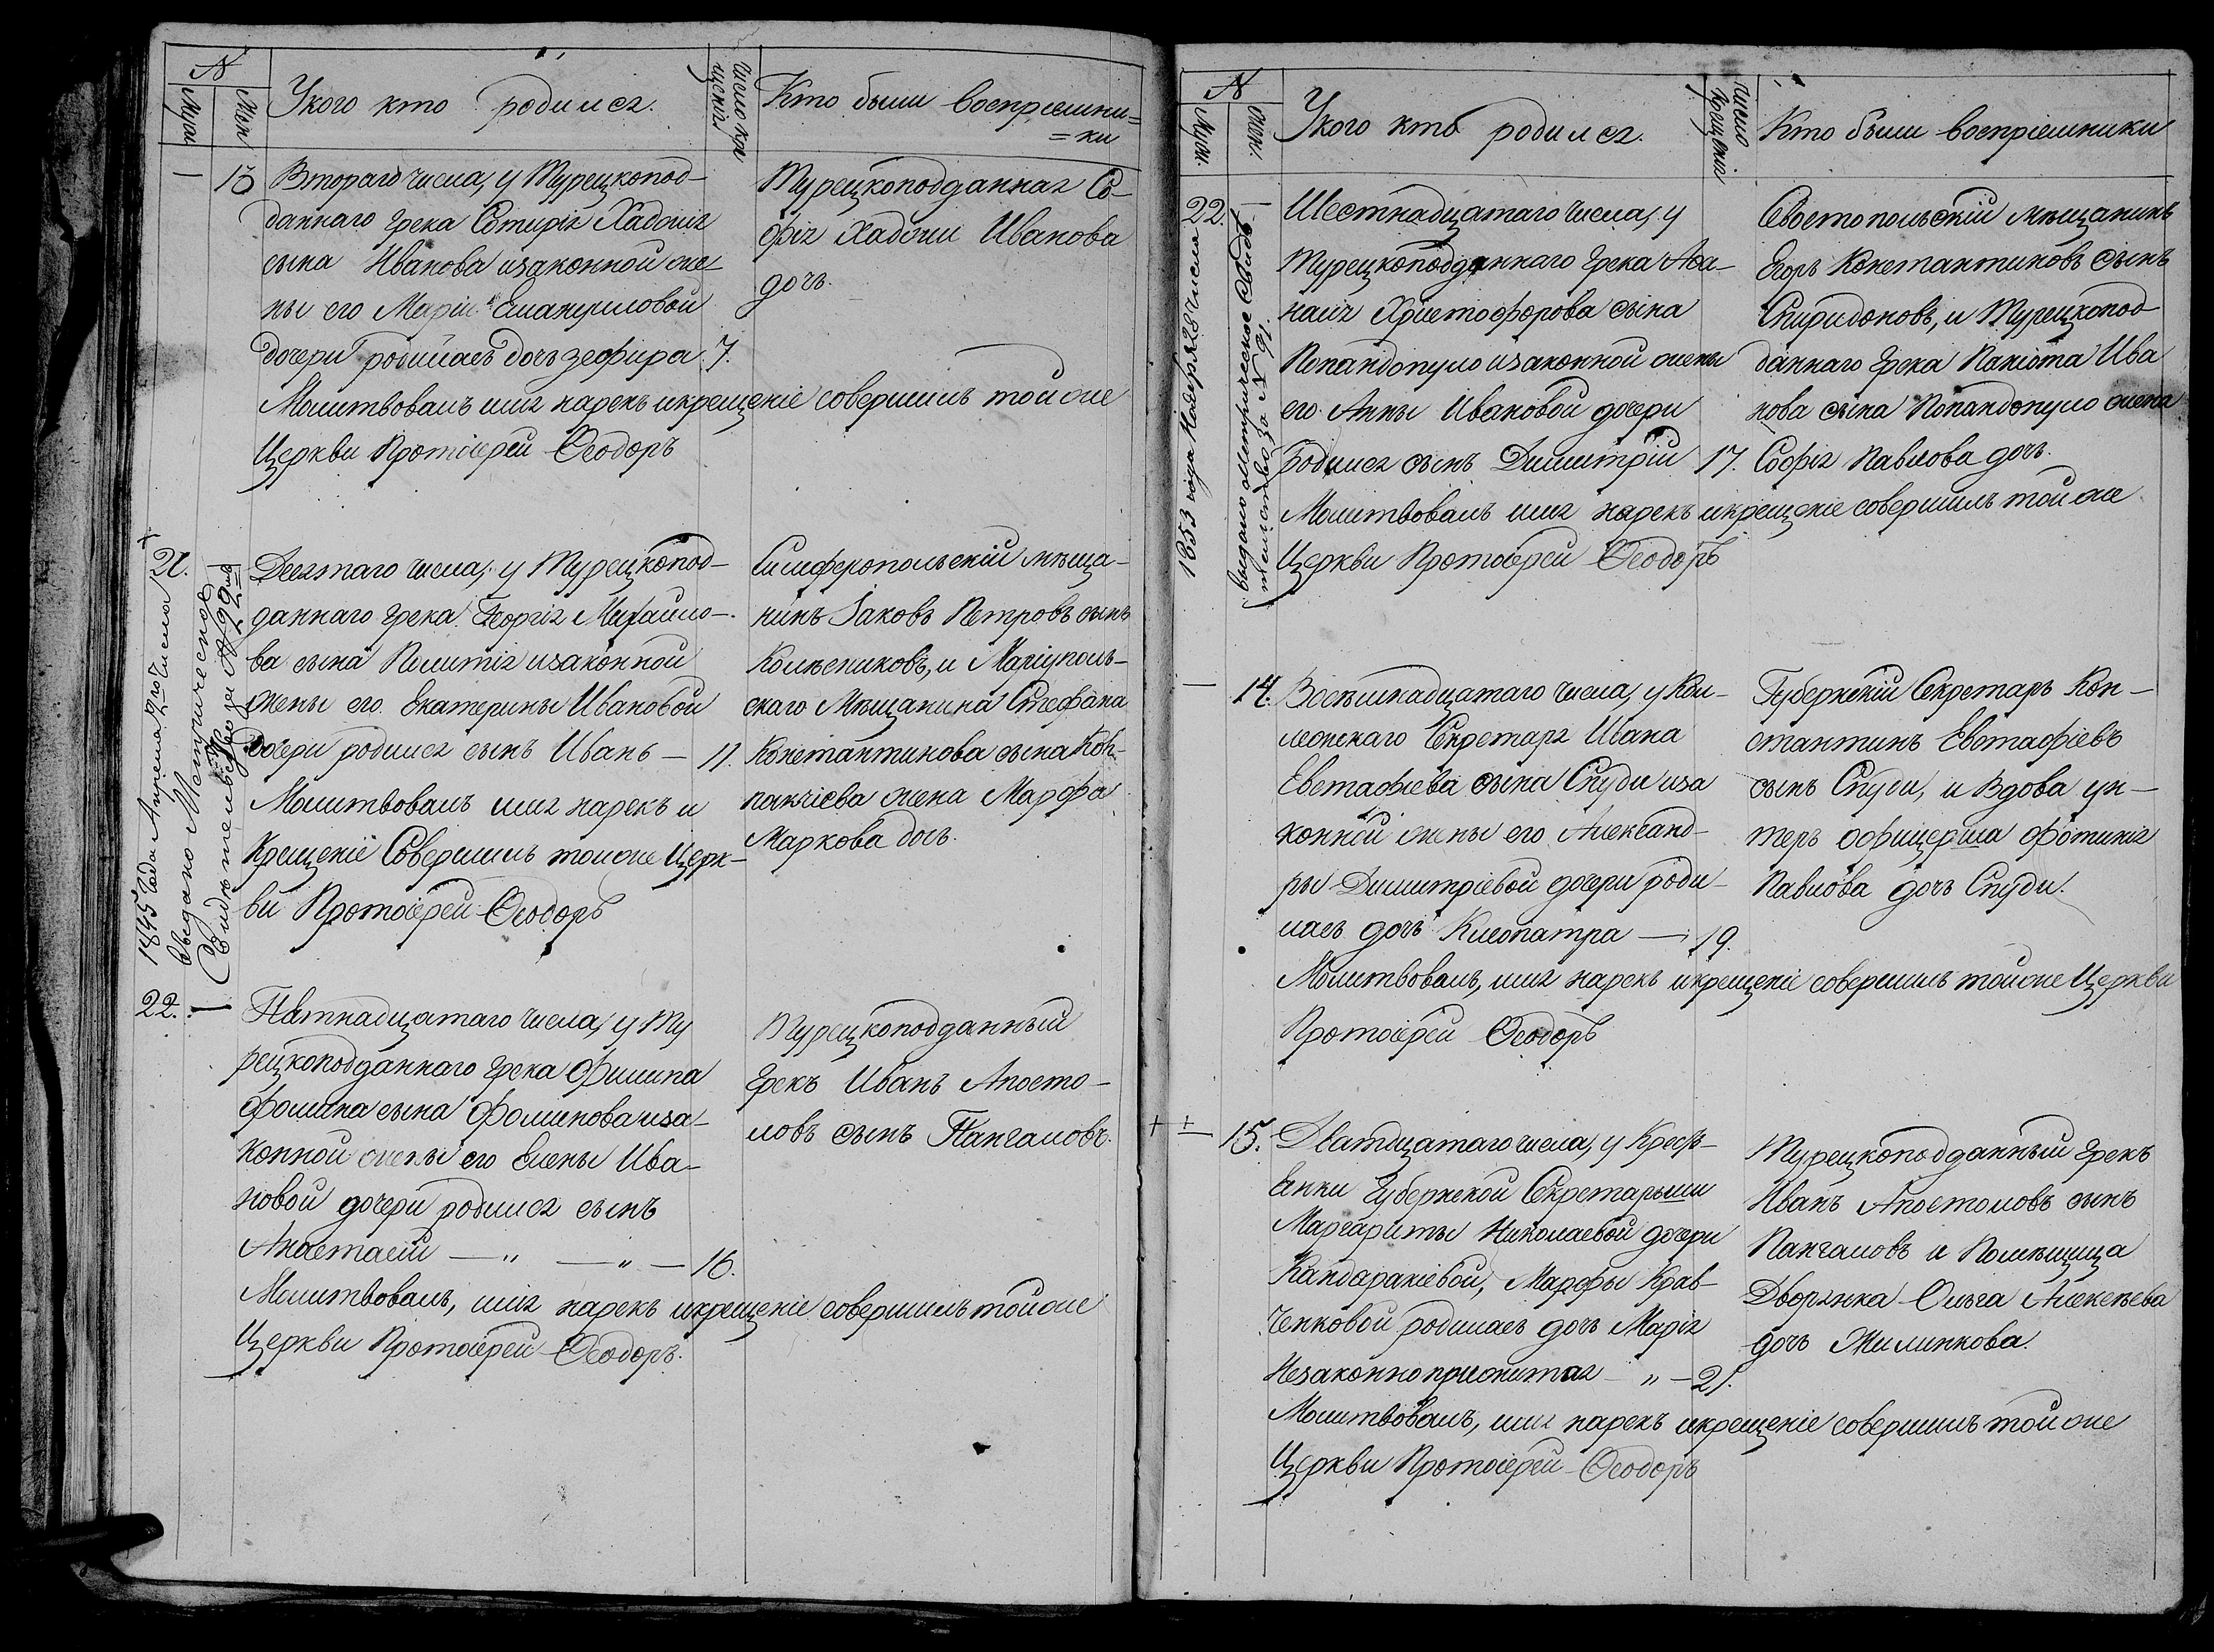 N
Муж.
Жен.
У кого кто родился.
Число кре
щенія
Кто были воспріемни=
=ки
13 Втораго числа, у Турецкопод-
даннаго Грека Сотирія Хаджи
сына Иванова изаконной же-
ны его Маріи Емануиловой
дочери родилась дочь Зефира 7.
Молитвовалъ имя нарекъ икрещеніе совершилъ той же
Церкви Протоіерей Ѳеодоръ
Турецкоподданная Со-
фія Хаджи Иванова
дочь.
21.
Девятаго числа, у Турецкопод-
даннаго Грека Георгія Михайло-
ва сына Политія изаконной
жены его Екатерины Ивановой
дочери родился сынъ Иванъ — 11.
Молитвовалъ имя нарекъ и
Крещеніе Совершилъ тойже Церк-
ви Протоіерей Ѳеодоръ
Симферопольскій мѣща-
нинъ Іаковъ Петровъ сынъ
Колѣсниковъ, и Маріуполь-
скаго Мѣщанина Стефана
Константинова сына Кон-
пакчіева жена Марфа
Маркова дочь.
1845 Года Апреля 2го числа
выдано Метрическое
Свидѣтельство за № 99мъ
22.
Пятнадцатаго числа, у Ту
рецкоподданнаго Грека Филипа
Фомина сына Фоминова иза-
конной жены его Елены Ива-
новой дочери родился сынъ
Анастасій — „ — „ — 16.
Молитвовалъ, имя нарекъ икрещеніе совершилъ тойже
Церкви Протоіерей Ѳеодоръ.
Турецкоподданный
Грекъ Иванъ Апосто-
ловъ сынъ Пангаловъ.
N
Муж.
Жен.
У кого кто родился.
Число
крещенія
Кто были воспріемники
22.
Шестнадцатаго числа, у
Турецкоподданнаго Грека Аѳа-
насія Христофорова сына
Попандопуло изаконной жены
его Анны Ивановой дочери
родился сынъ Димитрій 17.
Молитвовалъ имя нарекъ икрещеніе совершилъ той же
Церкви Протоіерей Ѳеодоръ
Севостопольскій мѣщанинъ
Егоръ Константиновъ сынъ
Спиридоновъ, и Турецкопод
даннаго Грека Паніота Ива
нова сына Попандопуло жена
Софія Павлова дочь.
1853 года Ноября 28 числа
выдано метрическое свидѣ-
тельство за N 91.
14. Восѣмнадцатаго числа, у Кол-
лежскаго Секретаря Ивана
Евстафіева сына Спуди иза
конной жены его Александ-
ры Димитріевой дочери роди-
лась дочь Клеопатра — 19.
Молитвовалъ, имя нарекъ икрещеніе совершилъ тойже Церкви
Протоіерей Ѳеодоръ
Губернскій Секретарь Кон-
стантинъ Евстафіевъ
сынъ Спуди, и Вдова ун-
теръ офицерша Фотинія
Павлова дочь Спуди.
15. Дватцатаго числа, у Крестъ-
янки Губернской Секретарьши
Маргариты Николаевой дочери
Кандаракіевой, Марфы Крав-
ченковой родилась дочь Марія
Незаконноприжитая — „ — 21.
Молитвовалъ, имя нарекъ икрещеніе совершилъ той же
Церкви Протоіерей Ѳеодоръ
Турецкоподданный Грекъ
Иванъ Апостоловъ сынъ
Пангаловъ и Помѣщица
Дворянка Ольга Алексѣева
дочь Жилинкова.